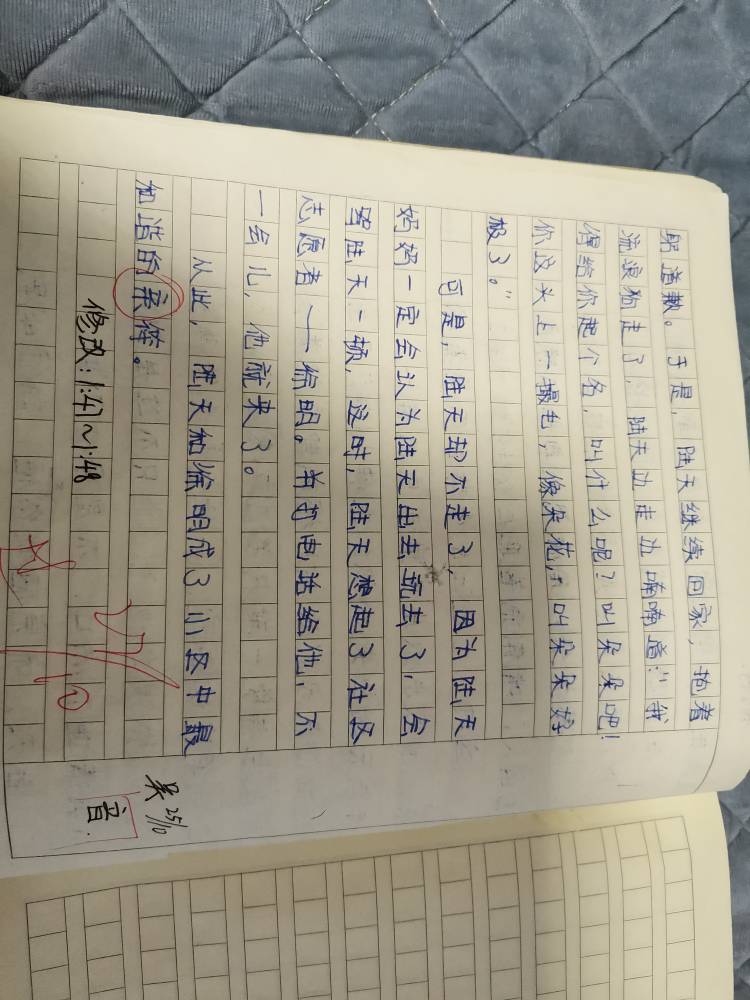 躬道歉。于是，陆天继续回家，抱着
流浪狗走了，陆天边走边喃喃道：“我
得给你起个名，叫什么呢？叫朵朵吧！
你这头上一撮毛，像朵花，叫朵朵好
极了。”
可是，陆天却不走了，因为陆天
妈妈一定会认为陆天出去玩去了，会
骂陆天一顿，这时，陆天想起了社区
志愿者——徐明。并打电话给他，不
一会儿，他就来了。
从此，陆天和徐明成了小区中最
和谐的亲符。
修改：1:47～1:48
25/10
音